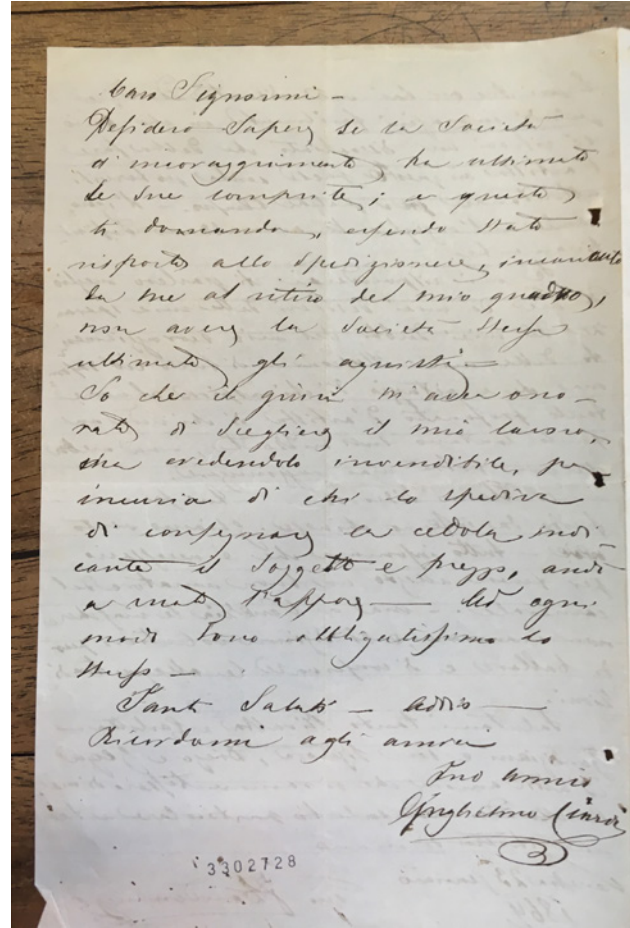 Caro Signorini –
Desidero Sapere se la Società
d'incoraggiamento, ha ultimate
le sue comprite; e questo
ti domando, essendo stato
risposto allo Spedizioniere, incaricato
da me al ritiro del mio quadro,
non avere la Società stessa
ultimato gli aquisti –
So che il giurì m'aveva ono-
rato di Scegliere il mio lavoro,
ma credendolo invendibile, per
incuria di chi lo spediva
di consegnare la cedola indi-
cante il Soggetto e prezzo, andò
a monte l'affare — Ad ogni
modo Sono obbligatissimo lo
stesso –
Tanti Saluti – Addio –
Ricordami agli amici
Tuo amico
Guglielmo Ciardi
3302728
1864